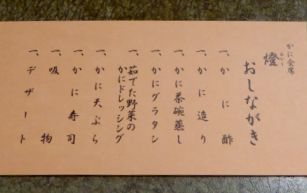 かに会席
燈
おしながき
一、かに酢
一、かに造り
一、かに茶碗蒸し
一、かにグラタン
一、茹でた野菜の
かにドレッシング
一、かに天ぷら
一、かに寿司
一、吸物
一、デザート